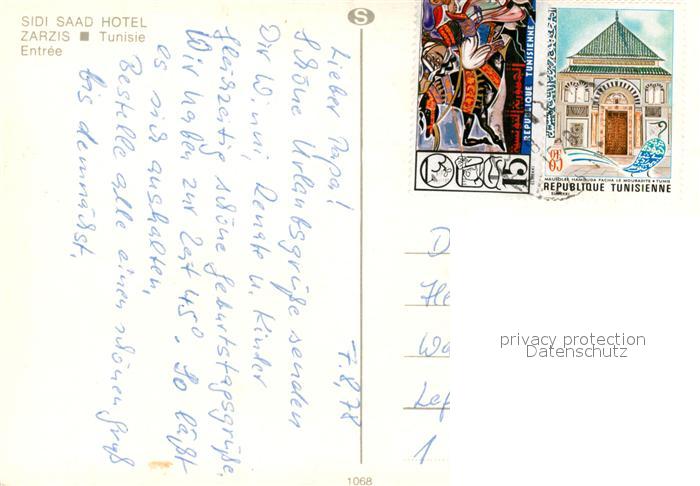 SIDI SAAD HOTEL
ZARZIS ■ Tunisie
Entrée
7.8.78
Lieber Papa!
Schöne Urlaubsgrüße senden
Dir Winni, Renate u. Kinder
Gleichzeitig schöne Geburtstagsgrüße,
Wir haben zur Zeit 45°. So läßt
es sich aushalten,
Bestelle alle einen schönen Gruß
bis demnächst.
S
1068
REPUBLIQUE TUNISIENNE
15
60
MAUSOLEE HAMOUDA PACHA LE MOURADITE • TUNIS
REPUBLIQUE TUNISIENNE
D
He
Wa
1
privacy protection
Datenschutz